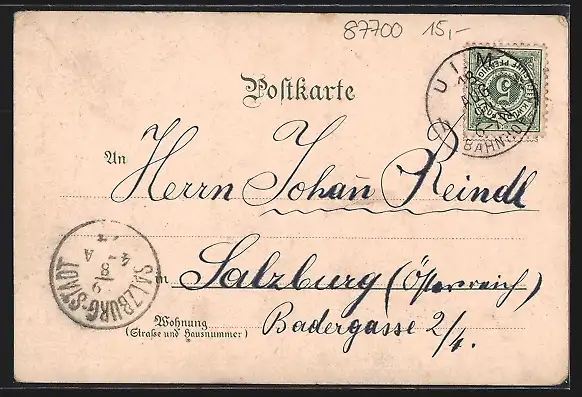 87700 15,-
ULM
BAHNHOF
Postkarte
An
Herrn Johañ Reindl
in Salzburg (Österreich)
Wohnung
(Straße und Hausnummer)
Badergasse 2/4.
SALZBURG-STADT
9/8
4-A
5